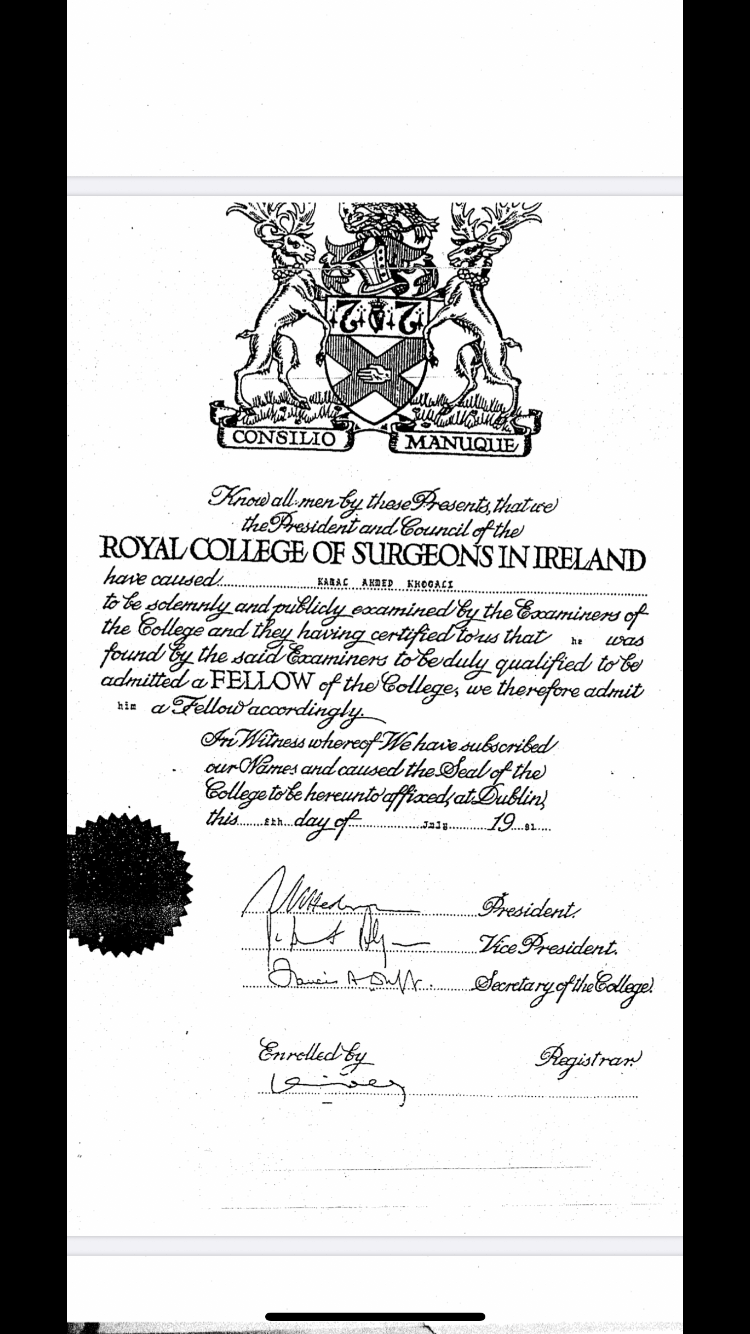 CONSILIO MANUQUE
Know all men by these Presents, that we
the President and Council of the
ROYAL COLLEGE OF SURGEONS IN IRELAND
have caused KAMAL AHMED KHOGALI
to be solemnly and publicly examined by the Examiners of
the College and they having certified to us that he was
found by the said Examiners to be duly qualified to be
admitted a FELLOW of the College, we therefore admit
him a Fellow accordingly.
In Witness whereof We have subscribed
our Names and caused the Seal of the
College to be hereunto affixed, at Dublin,
this day of July 19
President.
Vice President.
Secretary of the College.
Enrolled by Registrar.